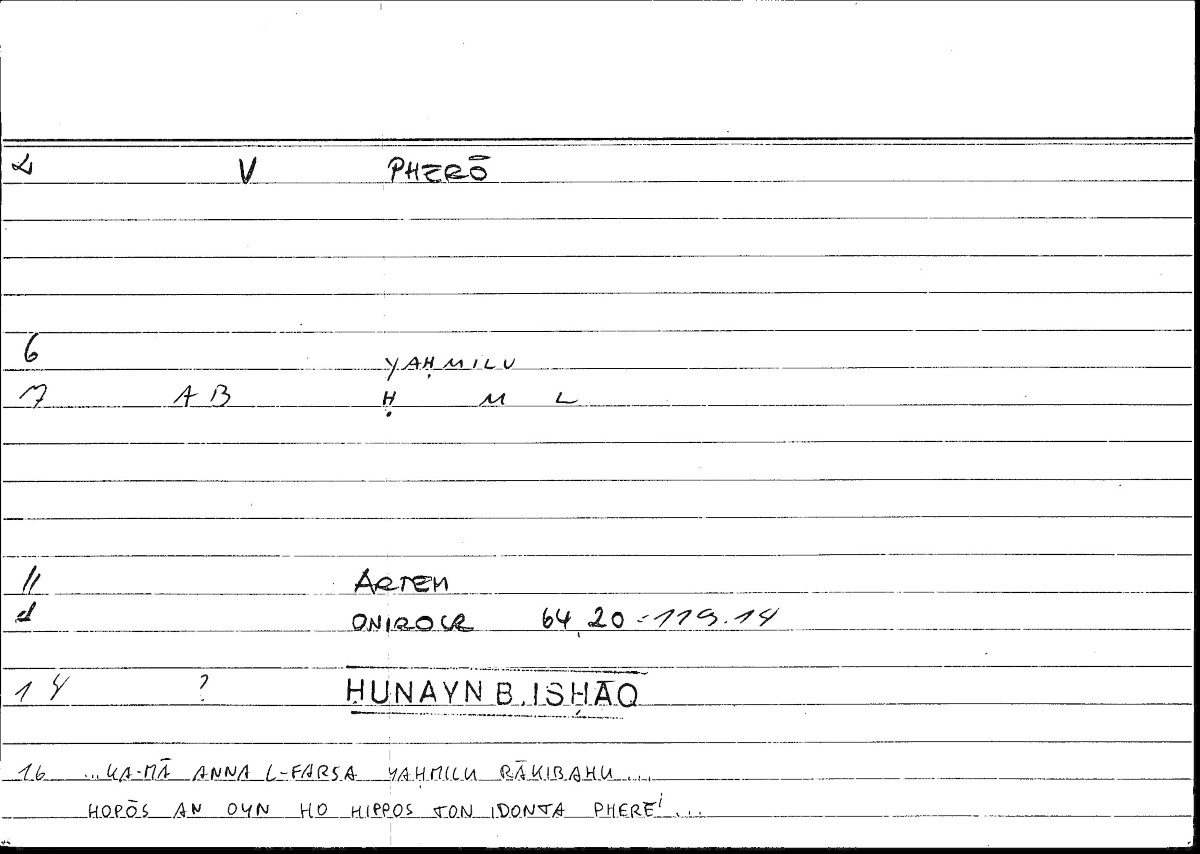 2 V PHERŌ
6 YAḤMILU
7 AB Ḥ M L
11 ARTEM
ONIROCR 64,20 = 119.14
14 ? ḤUNAYN B. ISḤĀQ
16 ...KA-MĀ ANNA L-FARSA YAḤMILU RĀKIBAHU...
HOPŌS AN OYN HO HIPPOS TON IDONTA PHERĒ...